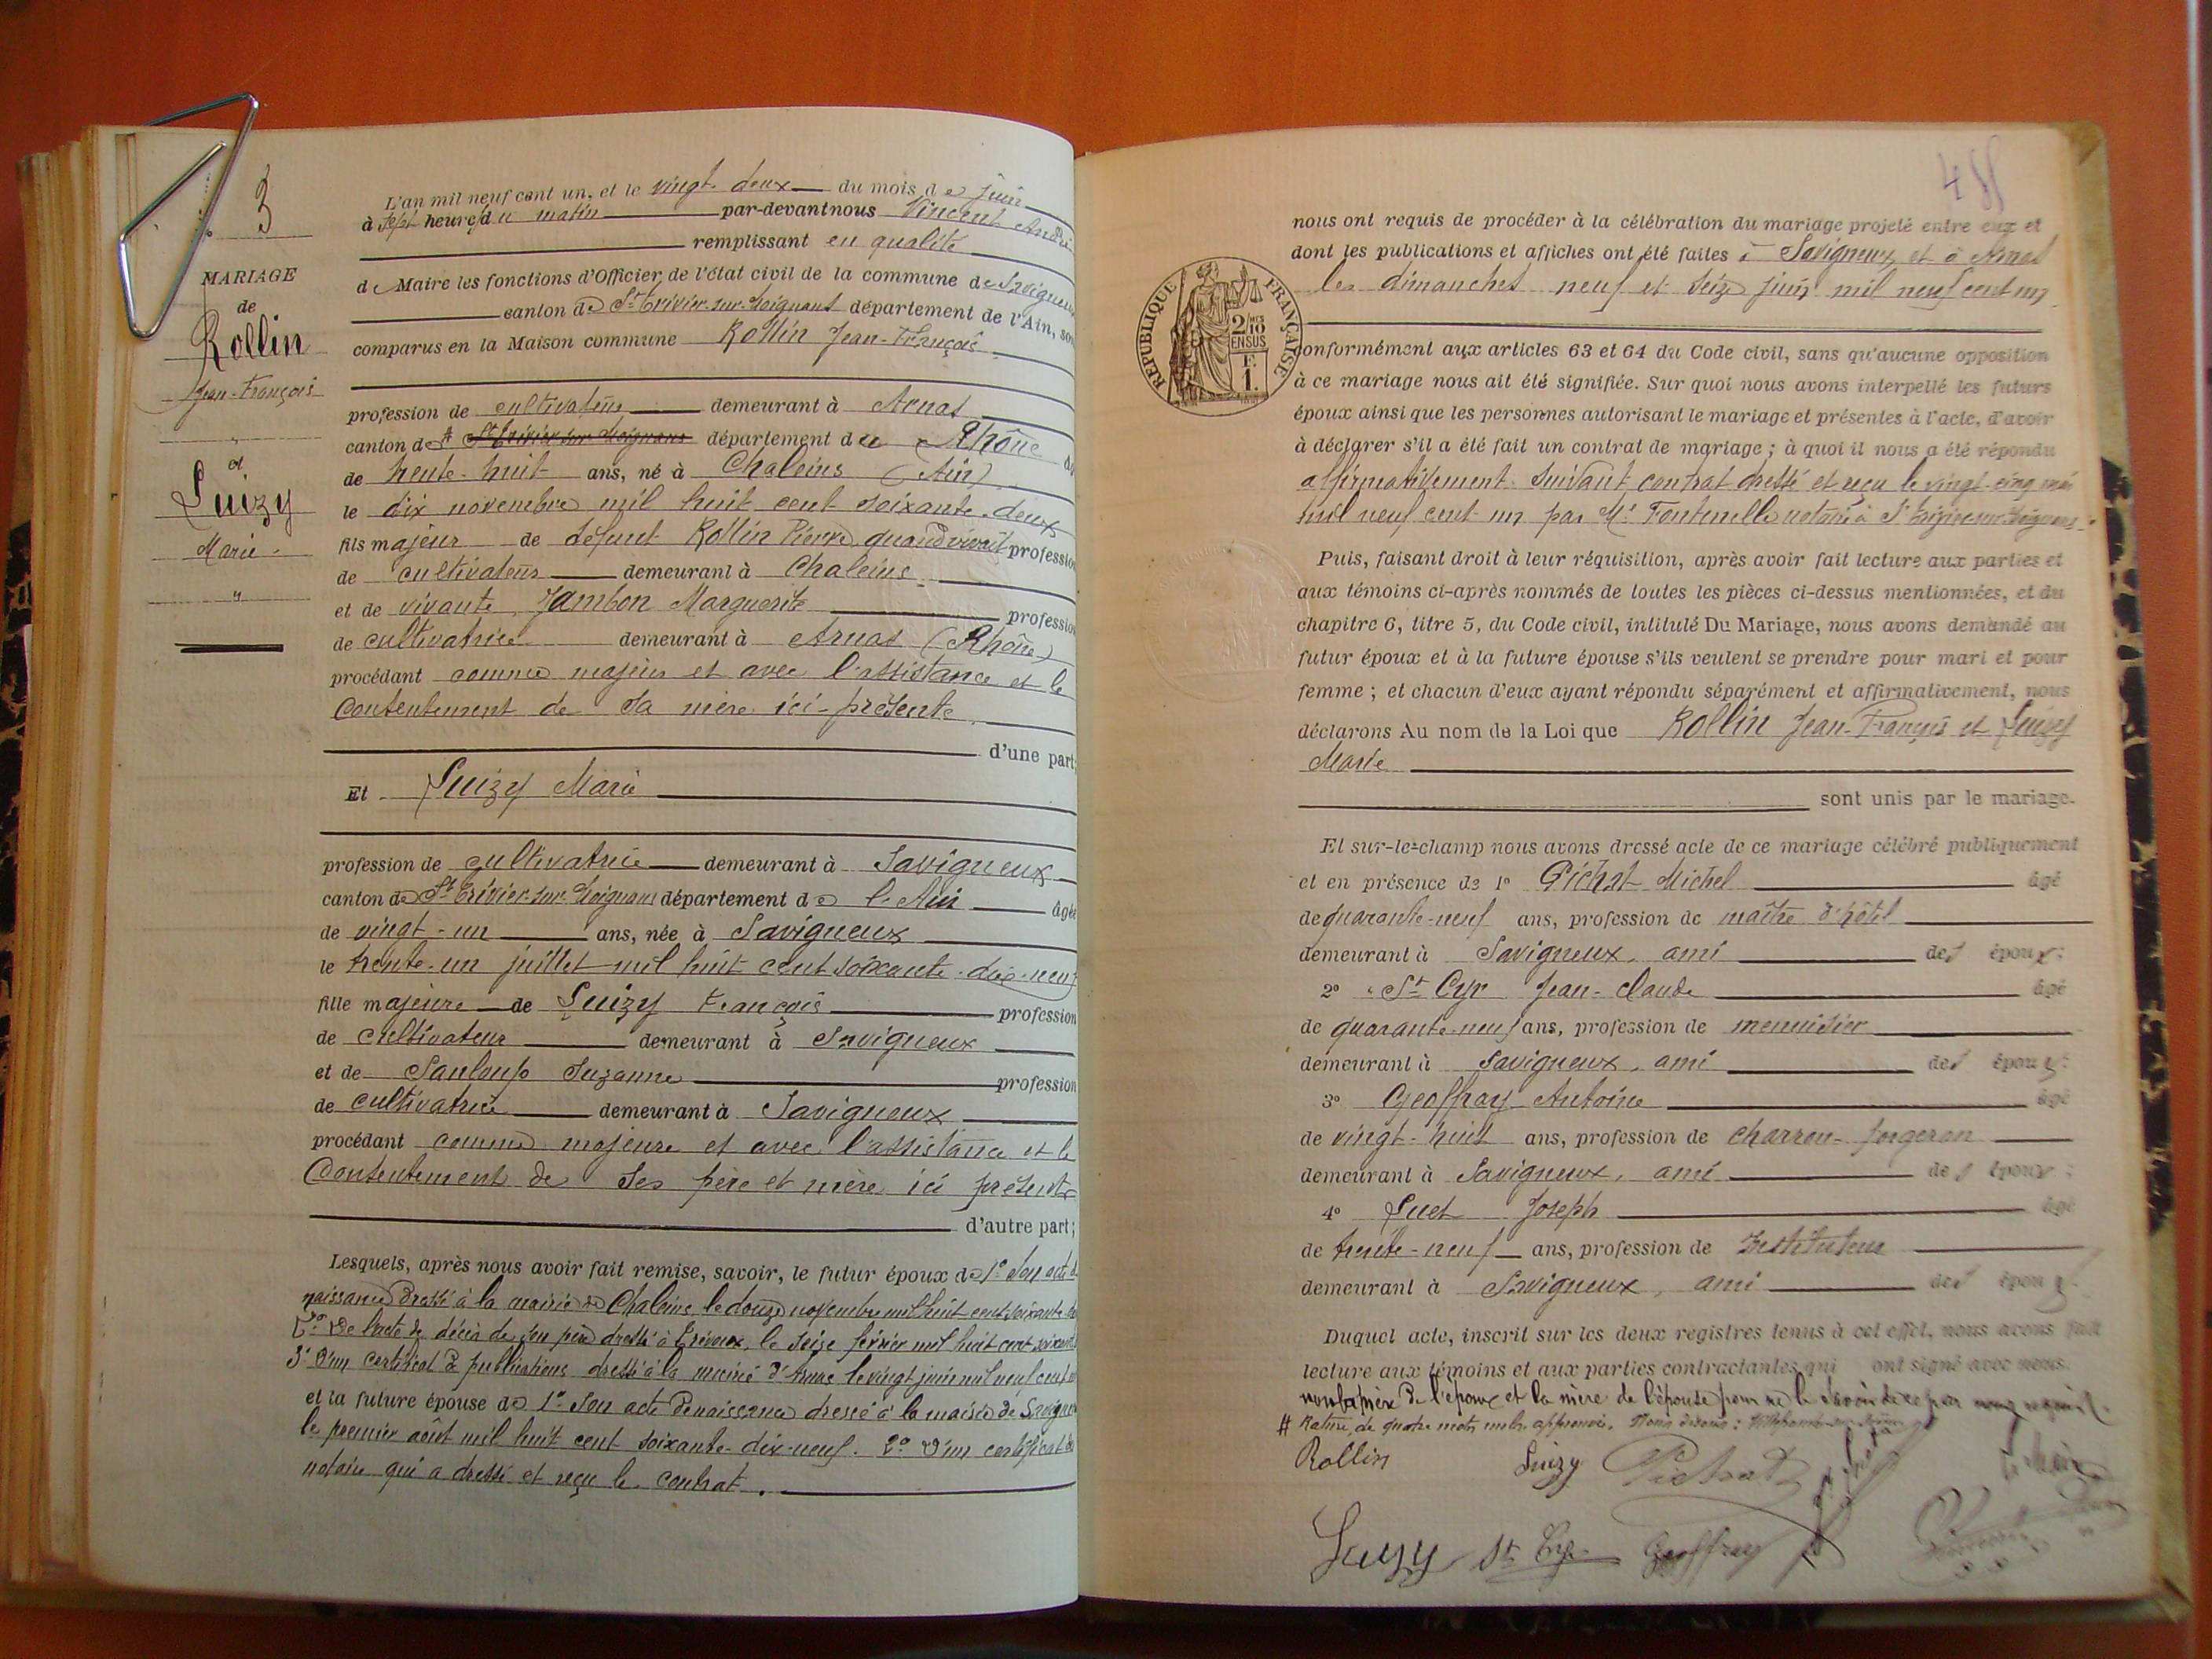 3
MARIAGE
de
Rollin
Jean-François
"
et
Luizy
Marie
"
L'an mil neuf cent un, et le vingt-deux du mois de juin
à sept heures du matin par-devant nous Vincent André
remplissant en qualité
de Maire les fonctions d'Officier de l'état civil de la commune de Savigneux
canton de St Trivier-sur-Moignans département de l'Ain, sont
comparus en la Maison commune Rollin Jean-François
profession de cultivateur demeurant à Arnas
canton de # St Trivier sur Moignans département du Rhône
de trente-huit ans, né à Chaleins (Ain)
le dix novembre mil huit cent soixante-deux
fils majeur de défunt Rollin Pierre quand vivait profession
de cultivateur demeurant à Chaleins
et de vivante Jambon Marguerite profession
de cultivatrice demeurant à Arnas (Rhône)
procédant comme majeur et avec l'assistance et le
Consentement de sa mère ici-présente
d'une part;
Et Luizy Marie
profession de cultivatrice demeurant à Savigneux
canton de St Trivier-sur-Moignans département de l'Ain âgée
de vingt-un ans, née à Savigneux
le trente-un juillet mil huit cent soixante-dix-neuf
fille majeure de Luizy François profession
de cultivateur demeurant à Savigneux
et de Sauloup Suzanne profession
de cultivatrice demeurant à Savigneux
procédant comme majeure et avec l'assistance et le
Consentement de ses père et mère ici présents
d'autre part;
Lesquels, après nous avoir fait remise, savoir, le futur époux de 1° Son acte de
naissance dressé à la mairie de Chaleins le douze novembre mil huit cent soixante
2° De l'acte de décès de son père dressé à Trévoux, le seize février mil huit cent
3° D'un certificat de publications dressé à la mairie d'Arnas le vingt juin mil neuf cent
et la future épouse de 1° Son acte de naissance dressé à la mairie de Savigneux
le premier août mil huit cent soixante-dix-neuf. 2° D'un certificat du
notaire qui a dressé et reçu le contrat.
nous ont requis de procéder à la célébration du mariage projeté entre eux et
dont les publications et affiches ont été faites à Savigneux et à Arnas
les dimanches neuf et seize juin mil neuf cent un
RÉPUBLIQUE FRANÇAISE
2/10 MES
EN SUS
F.
1.
conformément aux articles 63 et 64 du Code civil, sans qu'aucune opposition
à ce mariage nous ait été signifiée. Sur quoi nous avons interpellé les futurs
époux ainsi que les personnes autorisant le mariage et présentes à l'acte, d'avoir
à déclarer s'il a été fait un contrat de mariage ; à quoi il nous a été répondu
affirmativement. Suivant contrat dressé et reçu le vingt-cinq mai
mil neuf cent un par Me Fontenelle notaire à St Trivier-sur-Moignans.
Puis, faisant droit à leur réquisition, après avoir fait lecture aux parties et
aux témoins ci-après nommés de toutes les pièces ci-dessus mentionnées, et du
chapitre 6, titre 5, du Code civil, intitulé Du Mariage, nous avons demandé au
futur époux et à la future épouse s'ils veulent se prendre pour mari et pour
femme ; et chacun d'eux ayant répondu séparément et affirmativement, nous
déclarons Au nom de la Loi que Rollin Jean-François et Luizy
Marie
sont unis par le mariage.
Et sur-le-champ nous avons dressé acte de ce mariage célébré publiquement
et en présence de 1° Pichat Michel âgé
de quarante-neuf ans, profession de maître d'hôtel
demeurant à Savigneux, ami des époux;
2° St Cyr Jean-Claude âgé
de quarante-neuf ans, profession de menuisier
demeurant à Savigneux, ami des époux;
3° Geoffray Antoine âgé
de vingt-huit ans, profession de charron-forgeron
demeurant à Savigneux, ami des époux;
4° Suet Joseph âgé
de trente-neuf ans, profession de Instituteur
demeurant à Savigneux, ami des époux.
Duquel acte, inscrit sur les deux registres tenus à cet effet, nous avons fait
lecture aux témoins et aux parties contractantes qui ont signé avec nous.
mère de l'époux et la mère de l'épouse pour ne le savoir de ce par nous requis.
# Rature de quatre mots nuls approuvée. Nous disons :
Rollin Luizy Pichat
Le Maire
Luizy St Cyr Geoffray